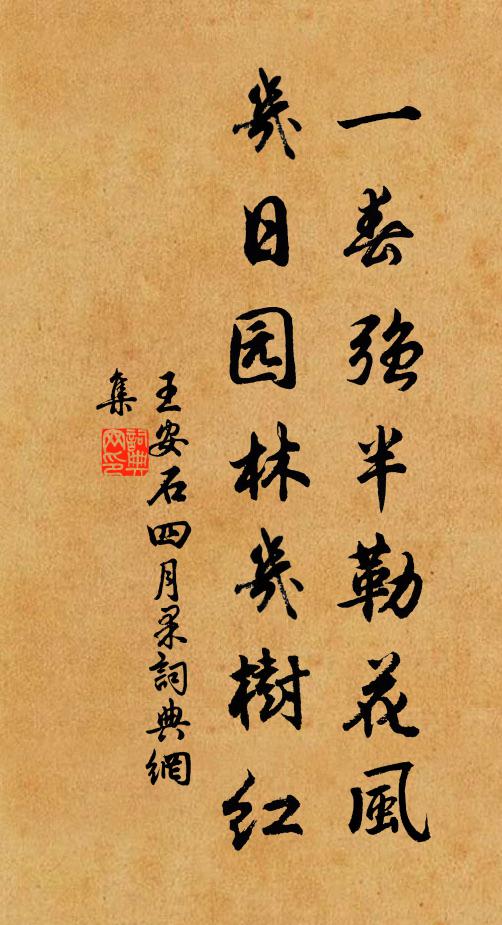 一春強半勒花風
幾日园林幾樹红
王安石四月果詞典網
集
詞典網印